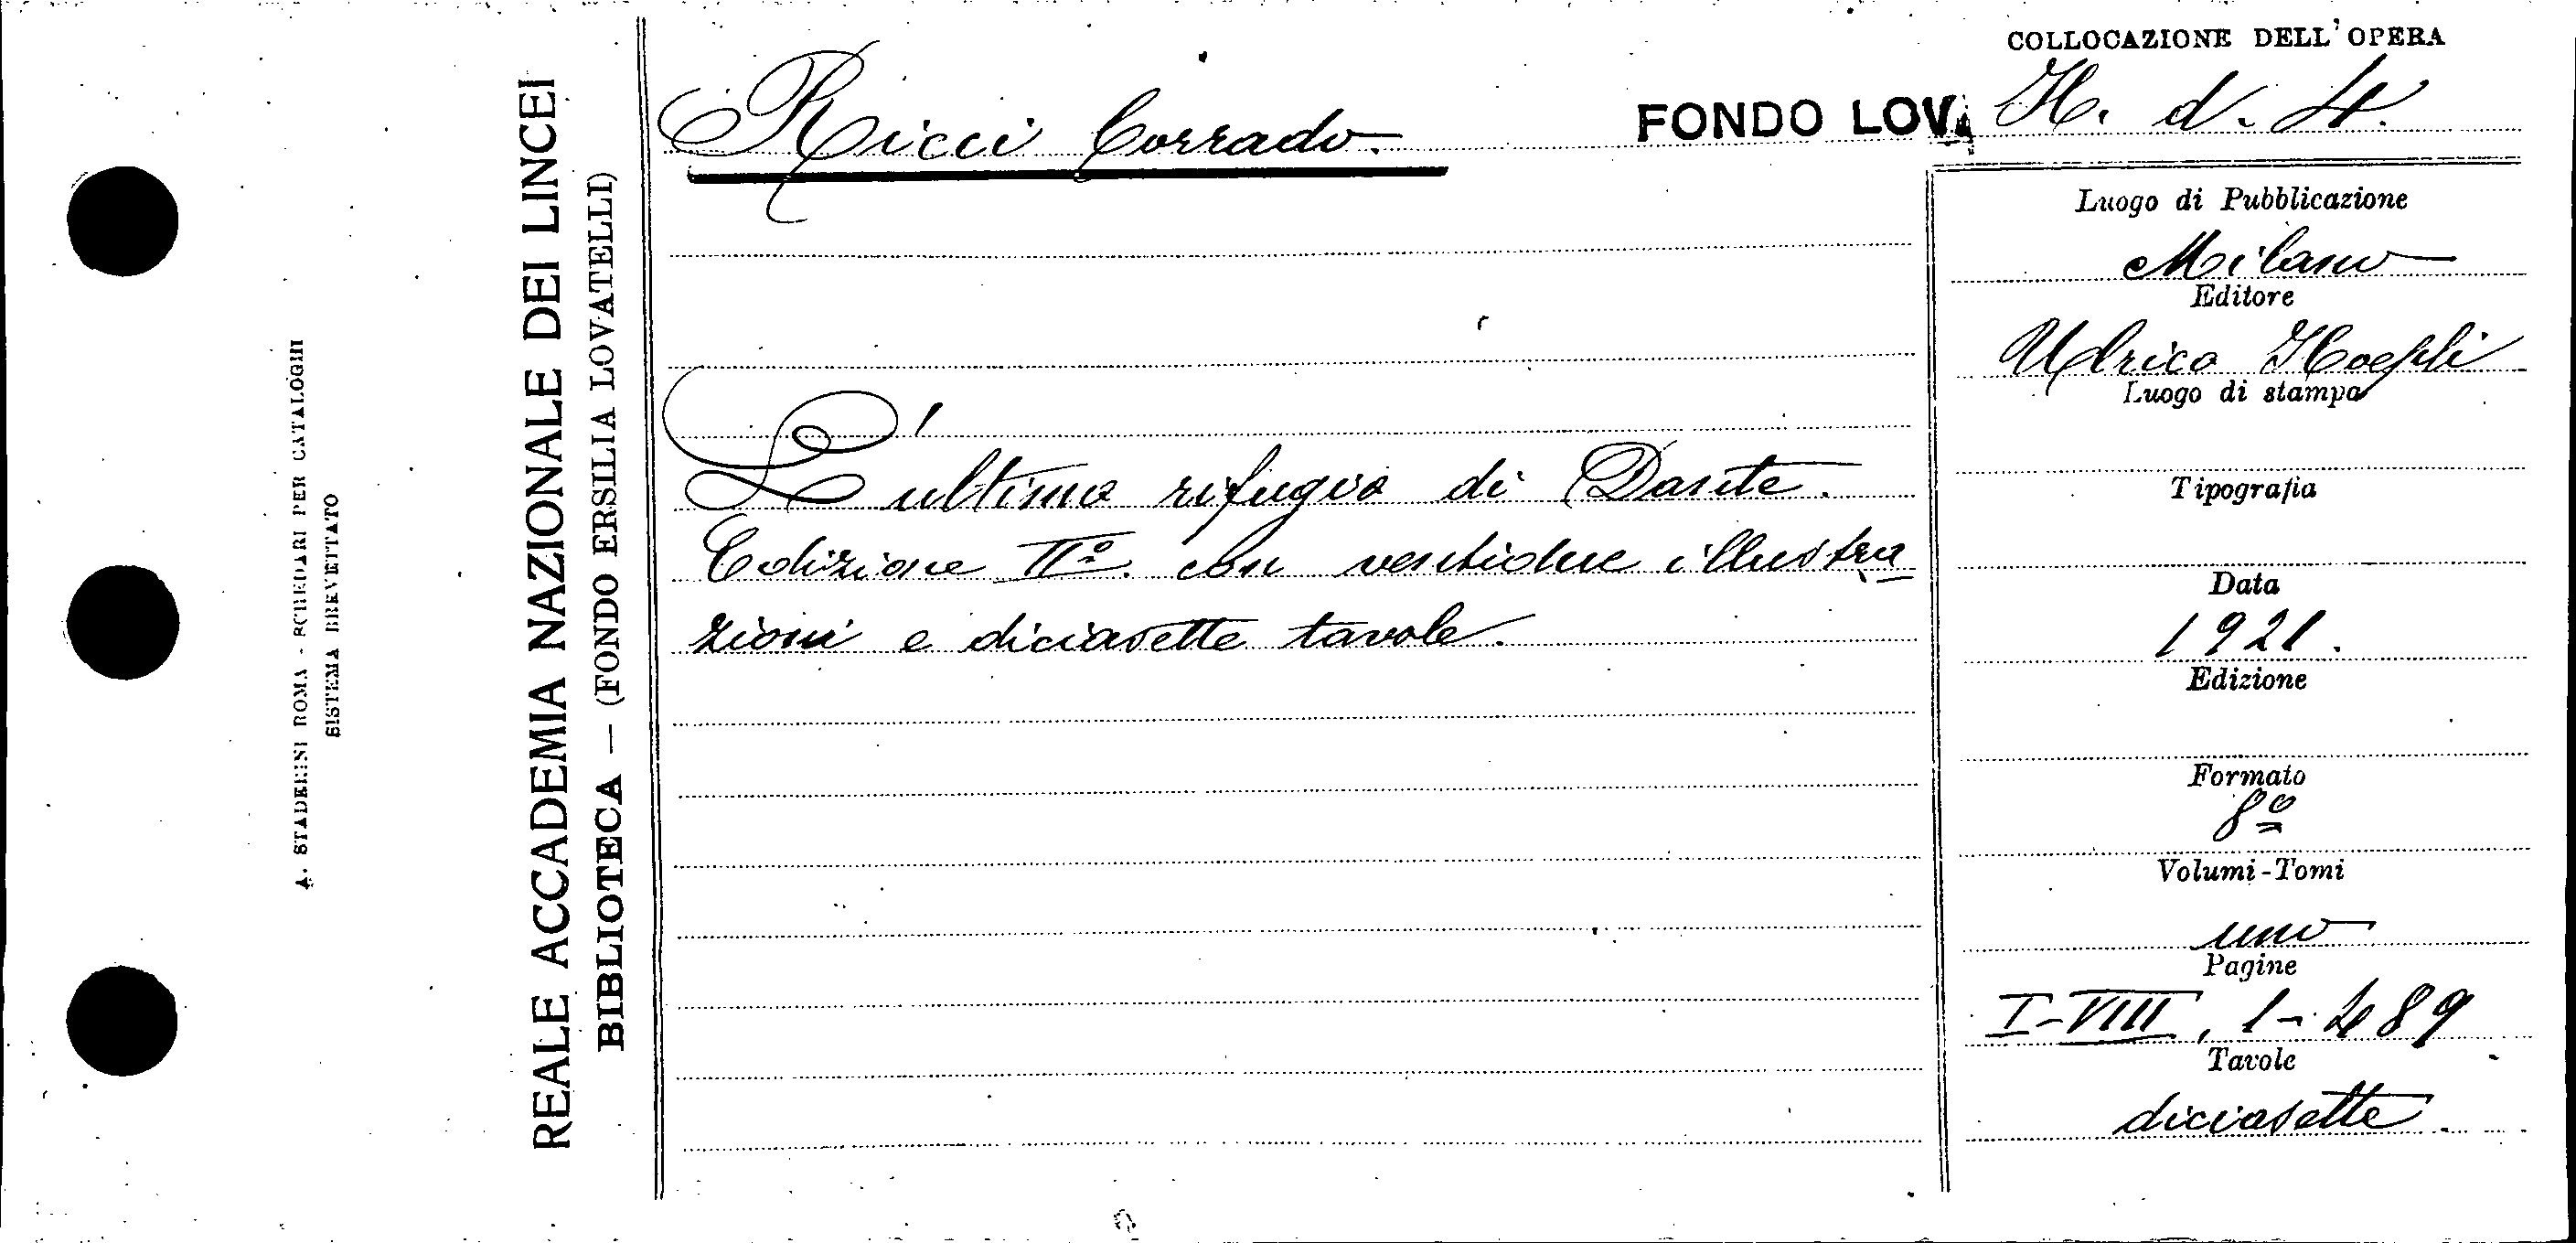 A. STADERINI ROMA - SCHEDARI PER CATALOGHI
SISTEMA BREVETTATO
REALE ACCADEMIA NAZIONALE DEI LINCEI
BIBLIOTECA — (FONDO ERSILIA LOVATELLI)
Ricci Corrado.
L'ultimo rifugio di Dante.
Edizione IIª. con ventidue illustra
zioni e diciasette tavole.
COLLOCAZIONE DELL'OPERA
FONDO LOV. H. d. 4.
Luogo di Pubblicazione
Milano
Editore
Ulrico Hoepli
Luogo di stampa
Tipografia
Data
1921.
Edizione
Formato
8º
Volumi-Tomi
uno
Pagine
I-VIII, 1-489
Tavole
diciasette.